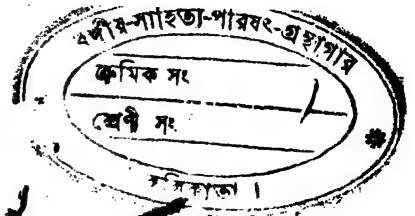 বঙ্গীয়-সাহিত্য-পারষৎ-গ্রন্থাগার
ক্রমিক সং
শ্রেণী সং
কলিকাতা।